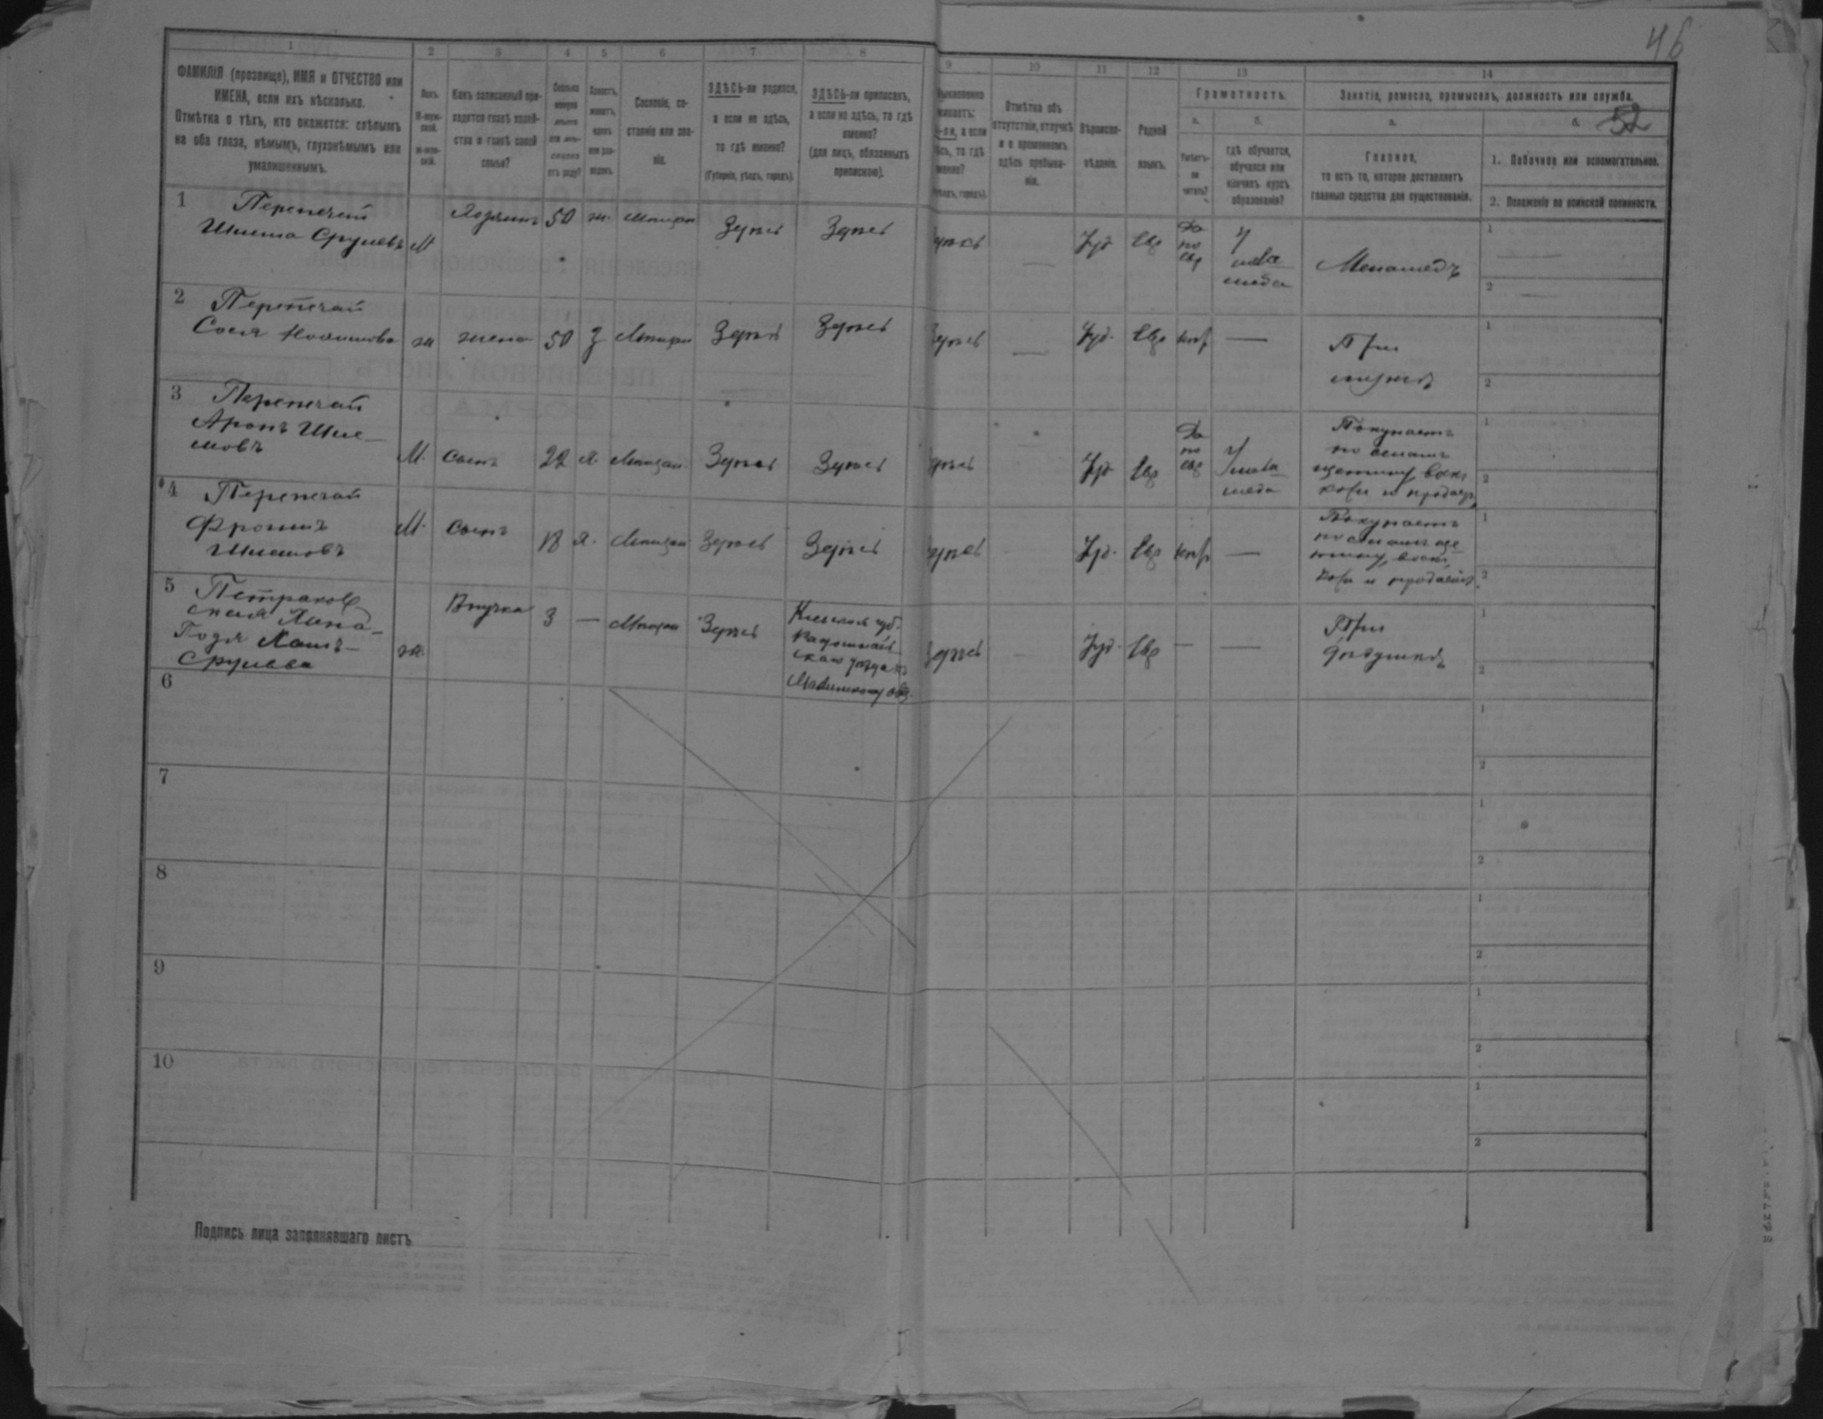 46
52
1 2 3 4 5 6 7 8 9 10 11 12 13 14
ФАМИЛІЯ (прозвище), ИМЯ и ОТЧЕСТВО или
ИМЕНА, если ихъ нѣсколько.
Отмѣтка о тѣхъ, кто окажется: слѣпымъ
на оба глаза, нѣмымъ, глухонѣмымъ или
умалишеннымъ.
Полъ.
Какъ записанный при-
ходится главѣ хозяй-
ства и главѣ своей
семьи?
Сколько
минуло
лѣтъ
или мѣ-
сяцевъ
отъ роду?
Холостъ,
женатъ,
вдовъ
или раз-
веденъ.
Сословіе, со-
стояніе или зва-
ніе.
ЗДѢСЬ-ли родился,
а если не здѣсь,
то гдѣ именно?
(Губернія, уѣздъ, городъ).
ЗДѢСЬ-ли приписанъ,
а если не здѣсь, то гдѣ
именно?
(для лицъ, обязанныхъ
припискою).
Отмѣтка объ
отсутствіи, отлучкѣ
и о временномъ
здѣсь пребыва-
ніи.
Вѣроиспо-
вѣданіе.
Родной
языкъ.
Грамотность.
а. б.
Умѣетъ-
ли
читать?
гдѣ обучается,
обучался или
кончилъ курсъ
образованія?
Занятіе, ремесло, промыселъ, должность или служба.
а. б.
Главное,
то есть то, которое доставляетъ
главныя средства для существованія.
1. Побочное или вспомогательное.
2. Положеніе по воинской повинности.
1 Перепечай
Шлема Срулевъ М
Хозяинъ 50 ж. Мѣщан
Здѣсь Здѣсь
Іуд Евр
Да
по
евр
У
мела
меда
Меламедъ
2 Перепечай
ж жена 50 З Мѣщан Здѣсь Здѣсь
Іуд. Евр негр —
При
мужѣ
3 Перепечай
Аронъ Шле-
мовъ
М. Сынъ 22 Х. Мѣщан. Здѣсь Здѣсь
Іуд Евр
Да
по
евр
У мела
меда
Покупаетъ
по селамъ
щетину, воскъ
кожи и продаетъ
4 Перепечай
Фроимъ
Шлемовъ
М. Сынъ 18 Х. Мѣщан Здѣсь Здѣсь
Іуд. Евр негр —
Покупаетъ
по селамъ ще
тину, воскъ
кожи и продаетъ
5 Петраков
ская Хана-
Годя Хаимъ-
Срулева
ж.
Внучка 3 — Мѣщан Здѣсь
Кіевской губ.
Радомысль
скаго уѣзда къ
Іуд. Евр — —
При
дѣдушкѣ
6
7
8
9
10
Подпись лица заполнявшаго листъ